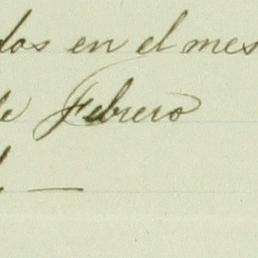 dos en el mes
de Febrero